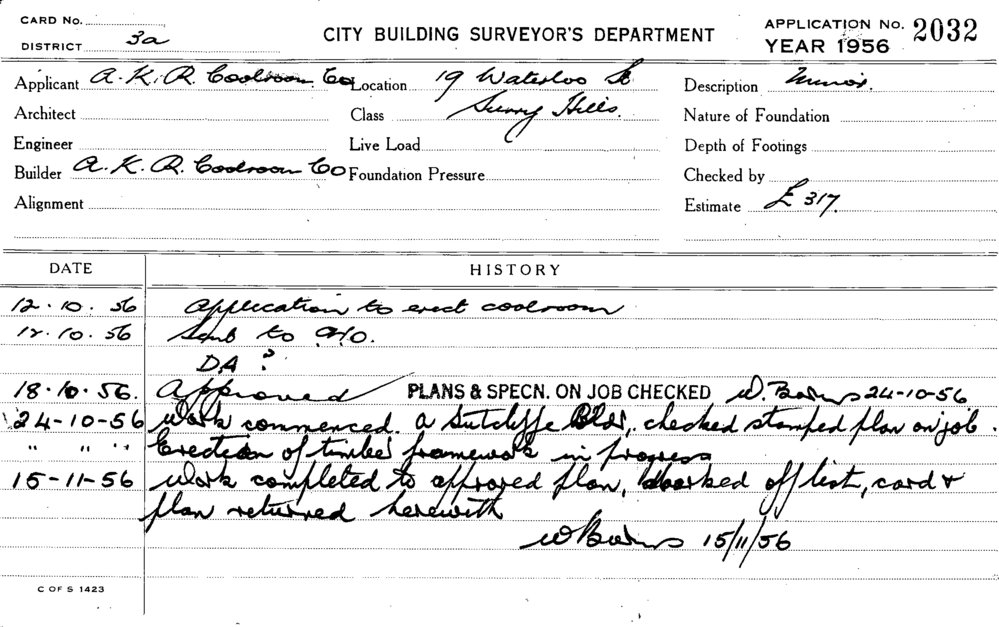 CARD No.
DISTRICT 3a
CITY BUILDING SURVEYOR'S DEPARTMENT
APPLICATION No. 2032
YEAR 1956
Applicant A. K. R. Coolroom Co Location 19 Waterloo St Description Minor.
Architect Class Surry Hills. Nature of Foundation
Engineer Live Load Depth of Footings
Builder A. K. R. Coolroom Co Foundation Pressure Checked by
Alignment Estimate £ 317.
DATE HISTORY
12.10.56 Application to erect coolroom
12.10.56 Sent to
DA ?
18.10.56. Approved PLANS & SPECN. ON JOB CHECKED W. 24-10-56
24-10-56 Work commenced. A Sutcliffe Bldr, checked stamped plan on job.
" " " Erection of timber framework in progress
15-11-56 Work completed to approved plan, marked off list, card &
plan returned herewith
W 15/11/56
C OF S 1423